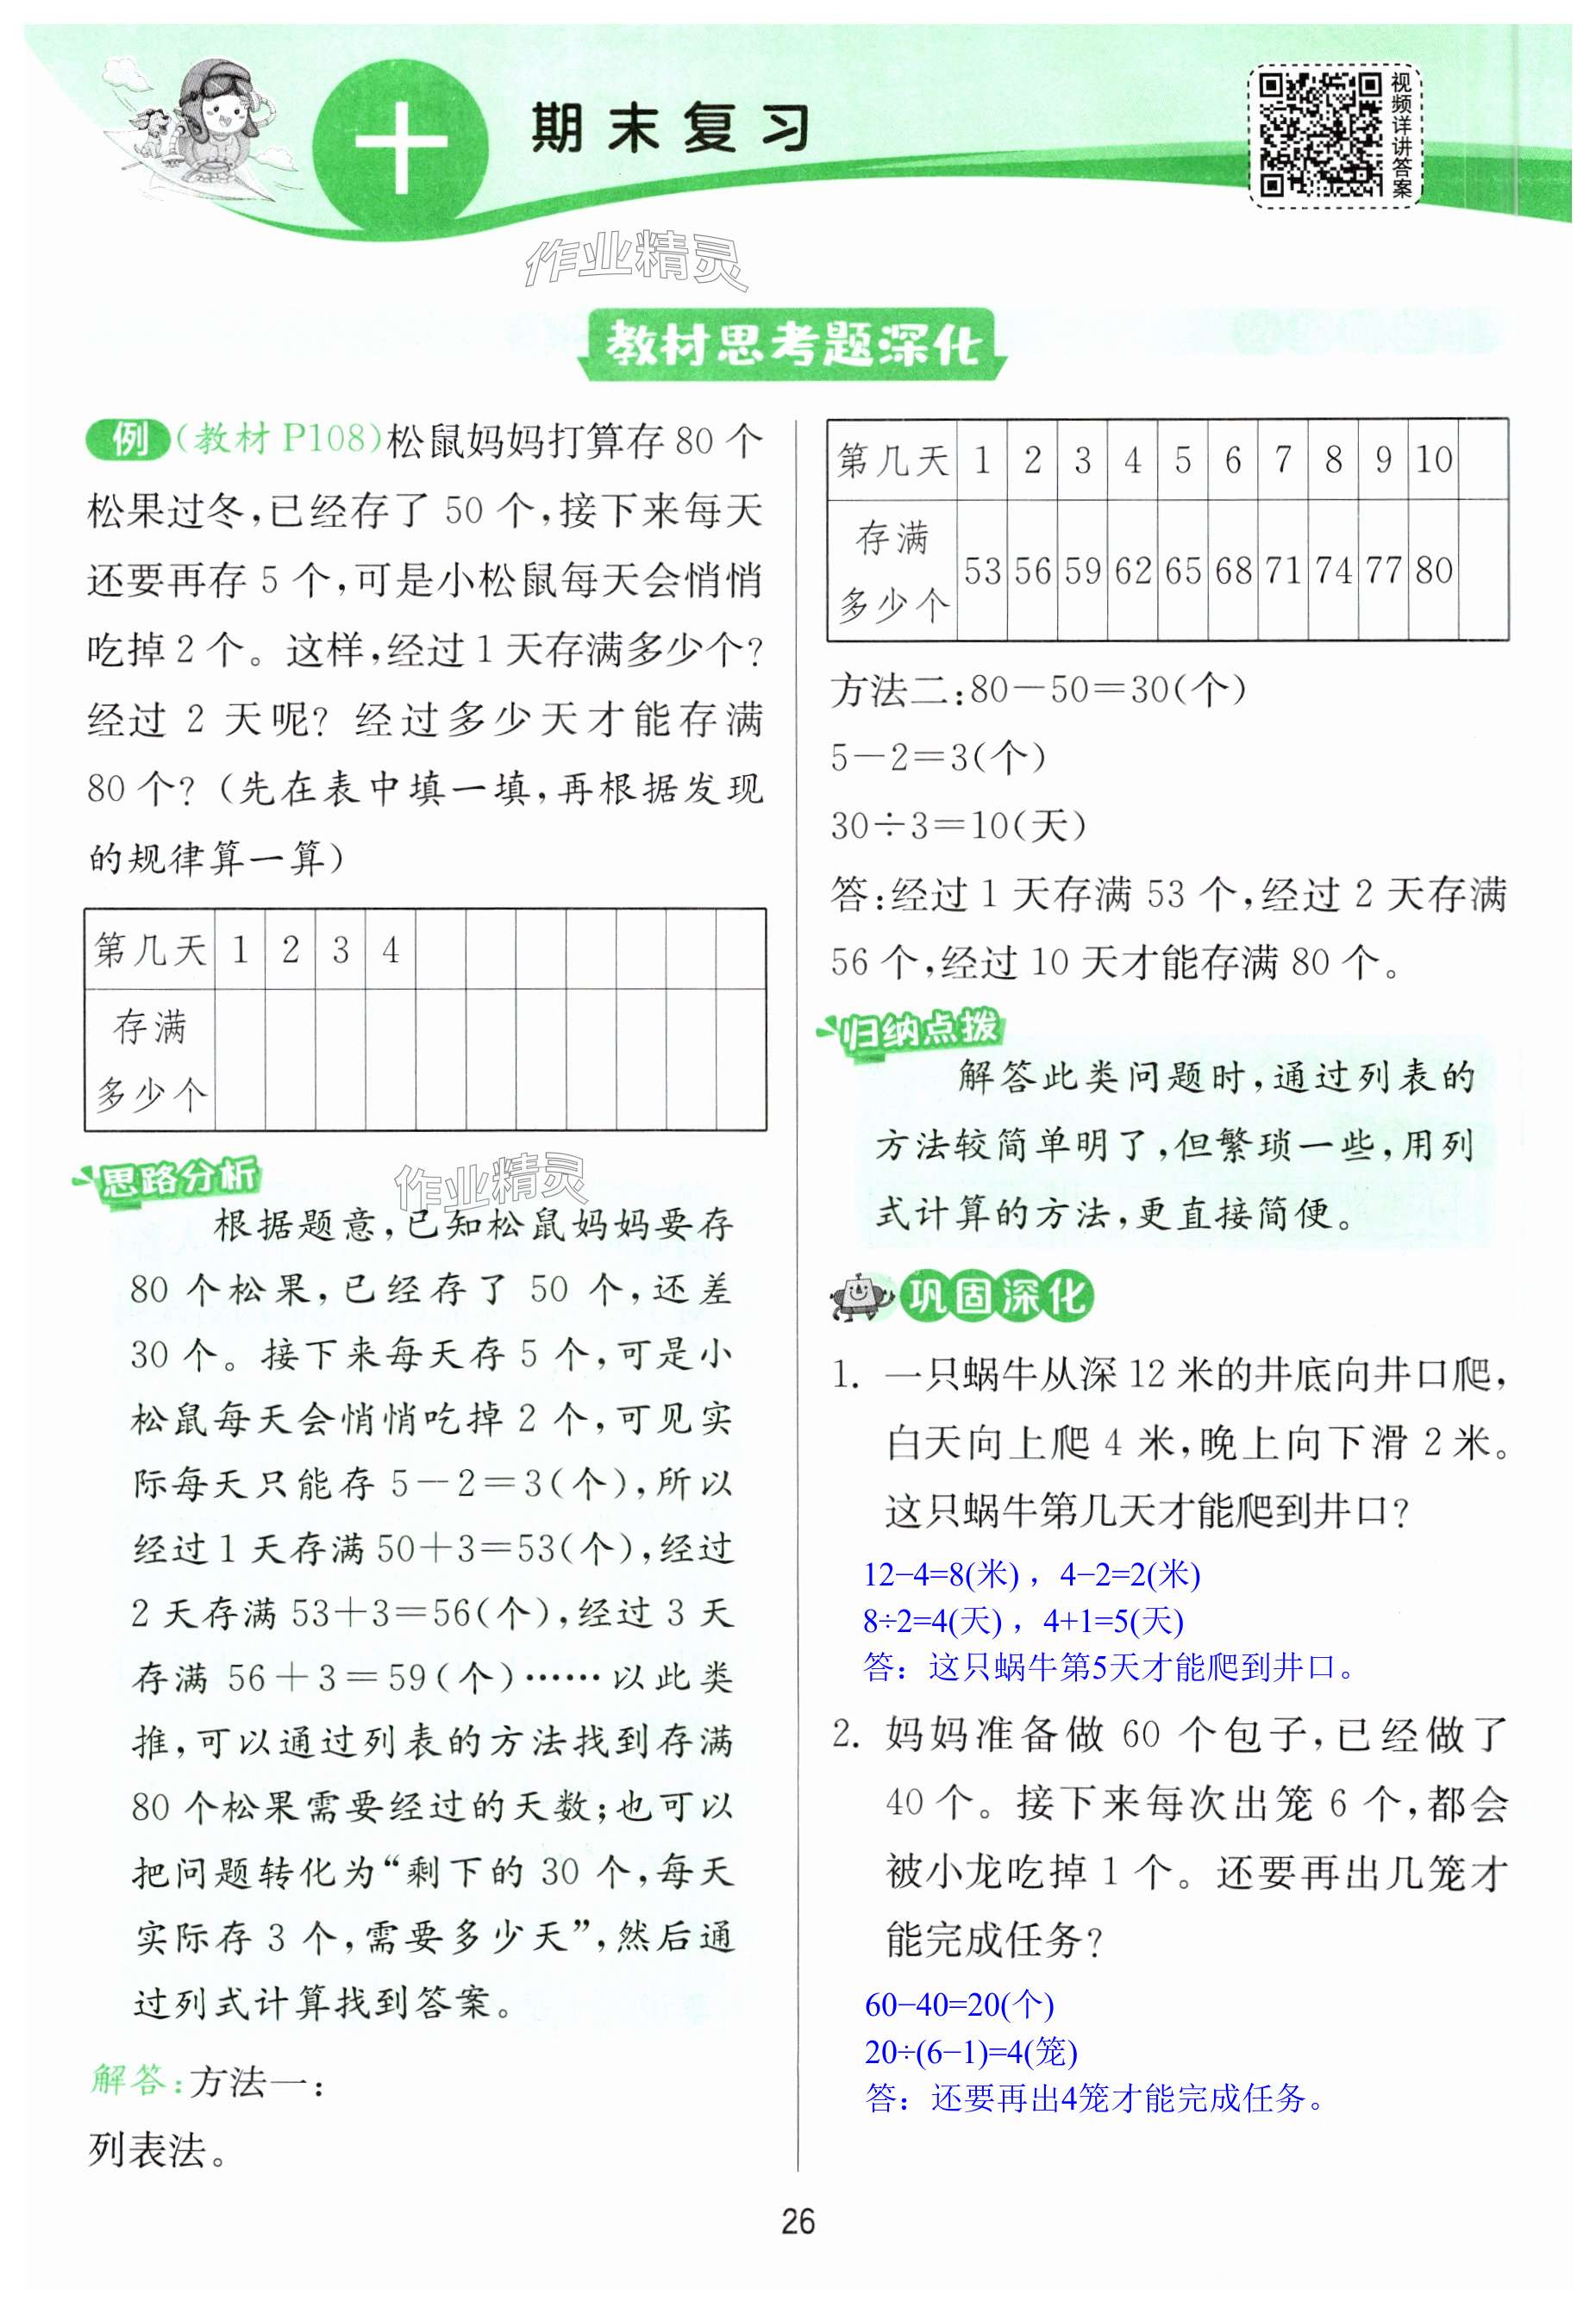 十 期末复习
视频详讲答案
作业精灵
教材思考题深化
例(教材 P108)松鼠妈妈打算存 80 个
松果过冬,已经存了 50 个,接下来每天
还要再存 5 个,可是小松鼠每天会悄悄
吃掉 2 个。这样,经过 1 天存满多少个?
经过 2 天呢? 经过多少天才能存满
80 个?(先在表中填一填,再根据发现
的规律算一算)
第几天 1 2 3 4
存满
多少个
思路分析
作业精灵
根据题意,已知松鼠妈妈要存
80 个松果,已经存了 50 个,还差
30 个。接下来每天存 5 个,可是小
松鼠每天会悄悄吃掉 2 个,可见实
际每天只能存 5-2=3(个),所以
经过 1 天存满 50+3=53(个),经过
2 天存满 53+3=56(个),经过 3 天
存满 56+3=59(个)……以此类
推,可以通过列表的方法找到存满
80 个松果需要经过的天数;也可以
把问题转化为“剩下的 30 个,每天
实际存 3 个,需要多少天”,然后通
过列式计算找到答案。
解答:方法一:
列表法。
第几天 1 2 3 4 5 6 7 8 9 10
存满
多少个 53 56 59 62 65 68 71 74 77 80
方法二:80-50=30(个)
5-2=3(个)
30÷3=10(天)
答:经过 1 天存满 53 个,经过 2 天存满
56 个,经过 10 天才能存满 80 个。
归纳点拨
解答此类问题时,通过列表的
方法较简单明了,但繁琐一些,用列
式计算的方法,更直接简便。
巩固深化
1. 一只蜗牛从深 12 米的井底向井口爬,
白天向上爬 4 米,晚上向下滑 2 米。
这只蜗牛第几天才能爬到井口?
12−4=8(米) , 4−2=2(米)
8÷2=4(天) , 4+1=5(天)
答：这只蜗牛第5天才能爬到井口。
2. 妈妈准备做 60 个包子,已经做了
40 个。接下来每次出笼 6 个,都会
被小龙吃掉 1 个。还要再出几笼才
能完成任务?
60−40=20(个)
20÷(6−1)=4(笼)
答：还要再出4笼才能完成任务。
26